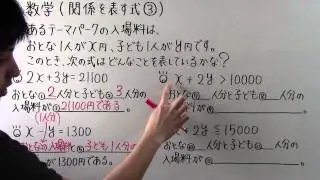 数学(関係を表す式③)
あるテーマパークの入場料は、
おとな1人がx円、子ども1人がy円です。
このとき、次の式はどんなことを表しているかな?
2x+3y=21100
おとな 2 人分と子ども 3 人分の
入場料が 21100円である。
x+2y>10000
人分と子ども 人分の
入場料が
(1人分)
x-y=1300
入場料と子ども1人分の
が1300円である。
2y≦15000
おとな 人分と子ども 人分の
入場料が